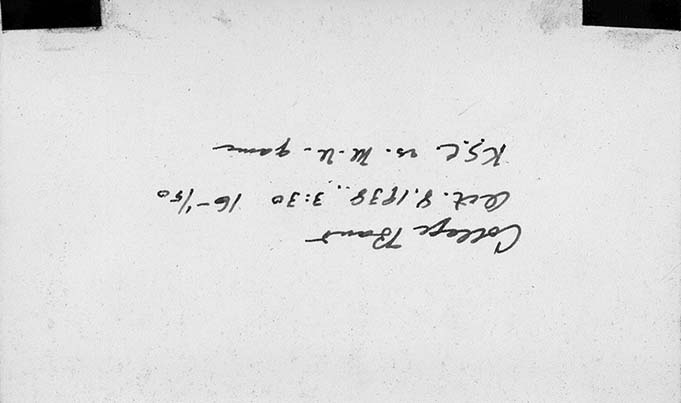 College Band
Oct. 8, 1938, 3:30 16-1/50
K.S.C. vs. M.U. game